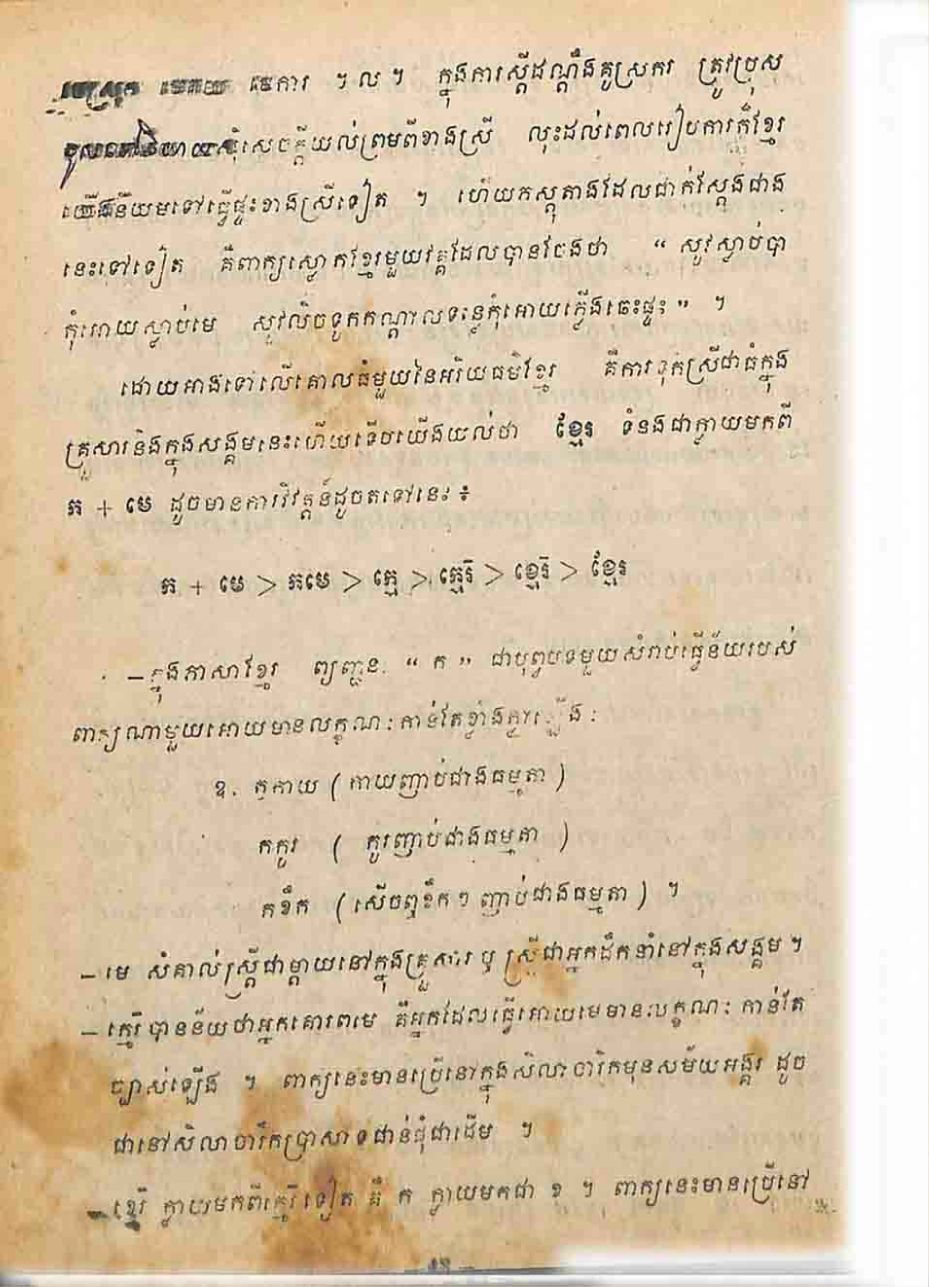 មេការ ។ ល ។ ក្នុងការស្ដីដណ្ដឹងគូស្រករ ត្រូវប្រុស
សុំសេចក្ដីយល់ព្រមពីខាងស្រី លុះដល់ពេលរៀបការក៏ខ្មែរ
យើងនិយមទៅធ្វើផ្ទះខាងស្រីទៀត ។ ហើយភស្ដុតាងដែលជាក់ស្ដែងជាង
នេះទៅទៀត គឺពាក្យស្លោកខ្មែរមួយវគ្គដែលបានចែងថា “ សូវស្លាប់បា
កុំអោយស្លាប់មេ សូវលិចទូកកណ្ដាលទន្លេកុំអោយភ្លើងឆេះផ្ទះ ” ។
ដោយអាងទៅលើគោលធំមួយនៃអរិយធម៌ខ្មែរ គឺការទុកស្រីជាធំក្នុង
គ្រួសារនិងក្នុងសង្គមនេះហើយទើបយើងយល់ថា ខ្មែរ ទំនងជាក្លាយមកពី
ក + មេ ដូចមានការវិវត្តន៍ដូចតទៅនេះ ៖
ក + មេ > កមេ > ក្មេ > ក្មេរិ > ខ្មេរិ > ខ្មែរ
– ក្នុងភាសាខ្មែរ ព្យញ្ជនៈ “ ក ” ជាបុព្វបទមួយសំរាប់ធ្វើន័យរបស់
ពាក្យណាមួយអោយមានលក្ខណៈកាន់តែខ្លាំងក្លាឡើង :
ឧ. កកាយ ( កាយញាប់ជាងធម្មតា )
កកូរ ( កូរញាប់ជាងធម្មតា )
កខឹក ( សើចឮខឹកៗ ញាប់ជាងធម្មតា ) ។
– មេ សំគាល់ស្ត្រីជាម្ដាយនៅក្នុងគ្រួសារ ឬ ស្ត្រីជាអ្នកដឹកនាំនៅក្នុងសង្គម ។
– ក្មេរិ បានន័យថាអ្នកគោរពមេ គឺអ្នកដែលធ្វើអោយមេមានលក្ខណៈ កាន់តែ
ច្បាស់ឡើង ។ ពាក្យនេះមានប្រើនៅក្នុងសិលាចារឹកមុនសម័យអង្គរ ដូច
ជានៅសិលាចារឹកប្រាសាទជាន់ជុំជាដើម ។
– ខ្មេរិ ក្លាយមកពីក្មេរិទៀត គឺ ក ក្លាយមកជា ខ ។ ពាក្យនេះមានប្រើនៅ